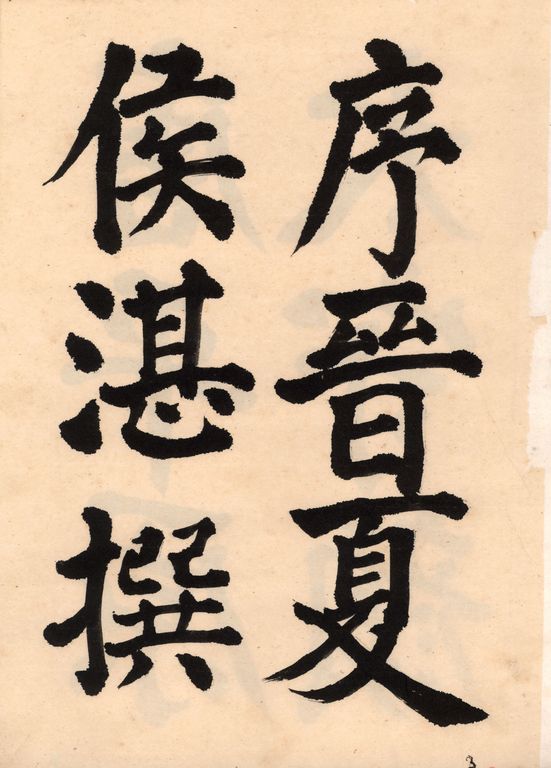 序晉夏
侯湛撰
3